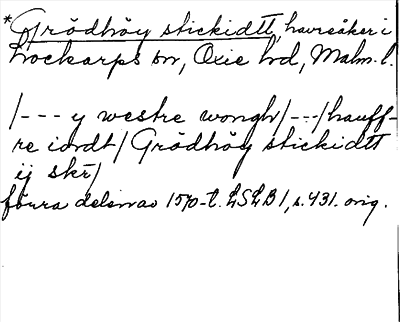 *Grödhöy stickidtt, havreåker i
Lockarps sn, Oxie hd, Malm. l.
/--- y westre wongh/---/hauff-
re iordt/ Grödhöy stickidtt
ij skr/
förra delen av 1570-t. LSLB 1, s. 431. orig.